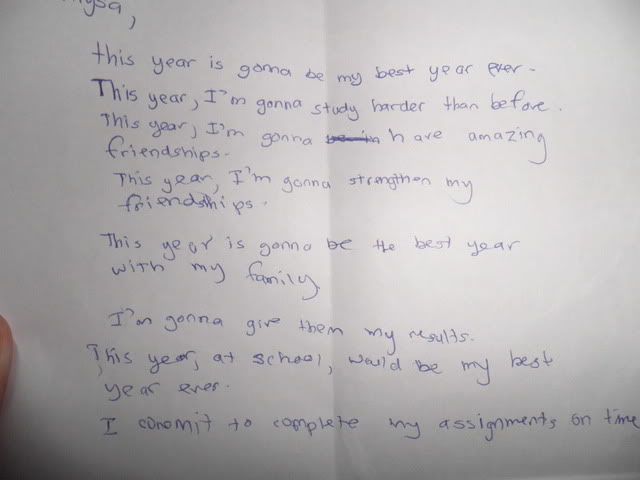 this year is gonna be my best year ever.
This year, I'm gonna study harder than before.
This year, I'm gonna have amazing
friendships.
This year, I'm gonna strengthen my
friendships.
This year is gonna be the best year
with my family.
I'm gonna give them my results.
This year, at school, would be my best
year ever.
I commit to complete my assignments on time